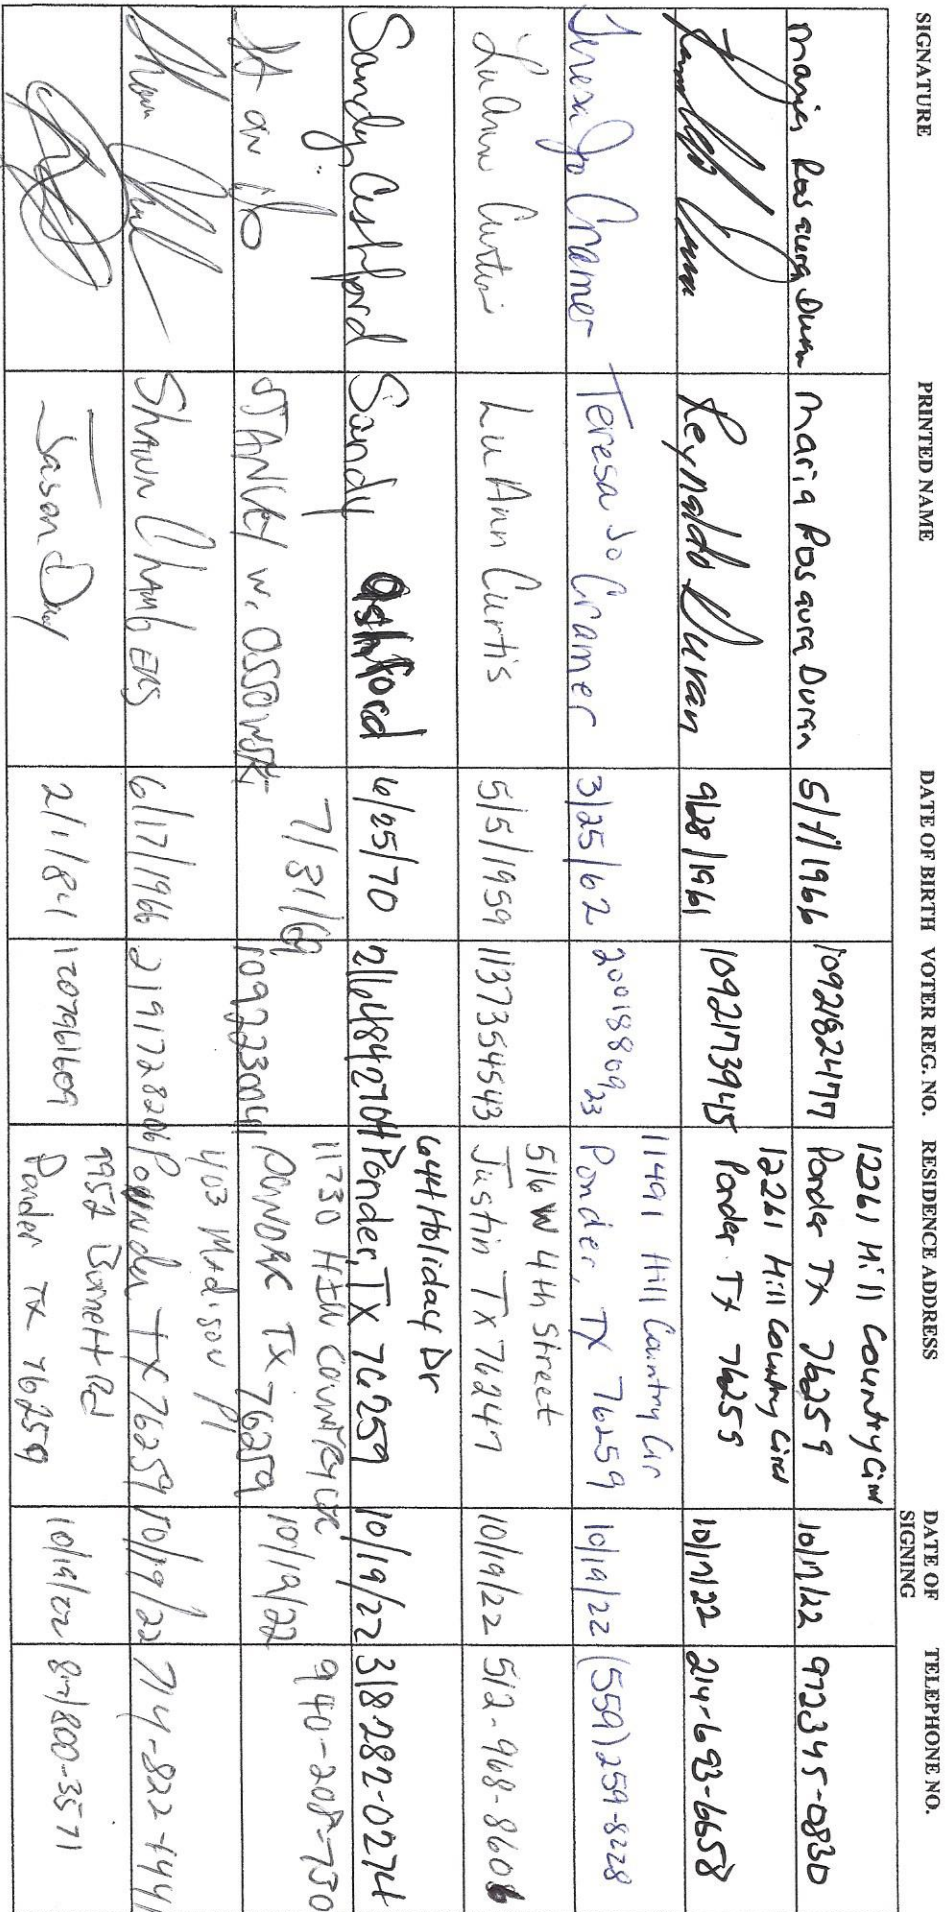 SIGNATURE PRINTED NAME DATE OF BIRTH VOTER REG. NO. RESIDENCE ADDRESS DATE OF SIGNING TELEPHONE NO.
Maria Rosaura Duran 5/1/1966 1092182477 12261 Hill Country Cir
Ponder TX 76259 10/17/22 972345-0830
Reynaldo Duran 9/28/1961 1092173945 12261 Hill Country
Ponder TX 76259 10/17/22 214-693-6658
Teresa Jo Cramer Teresa Jo Cramer 3/25/62 2001880923 11491 Hill Country Cir
Ponder, TX 76259 10/19/22 (559) 259-8228
LuAnn Curtis LuAnn Curtis 5/5/1959 1137354543 516 W 4th Street
Justin Tx 76247 10/19/22 512-968-8606
Sandy Ashford Sandy ashford 6/25/70 644 Holiday Dr
Ponder, TX 76259 10/19/22 318-282-0274
STANLEY W. OSSOWSKI 7/31/69 1092230041 11730
PONDER TX 76259 10/19/22 940-208-730
SHAWN ChAmbERS 6/17/1966 2191728206 403 Madison Pl
TX 76259 10/19/22 714-822-1441
Jason Day 2/1/84 1207961609 9952 Burnett Rd
Ponder TX 76259 10/19/22 817/800-3571